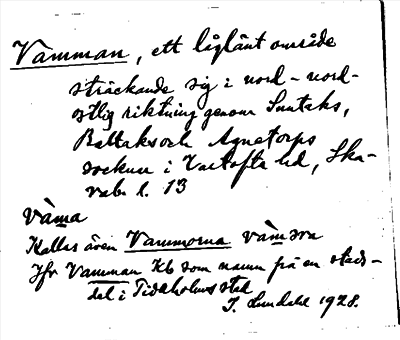 Vämman, ett låglänt område
sträckande sig i nord-nord-
ostlig riktning genom Suntaks,
Baltaks och Agnetorps
socknar i Vartofta hd, Ska-
rab. l. 13
vàma
Kallas även Vammorna vàmøra
Jfr Vamman Kb som namn på en stads-
del i Tidaholms stad
J. Lundahl 1928.